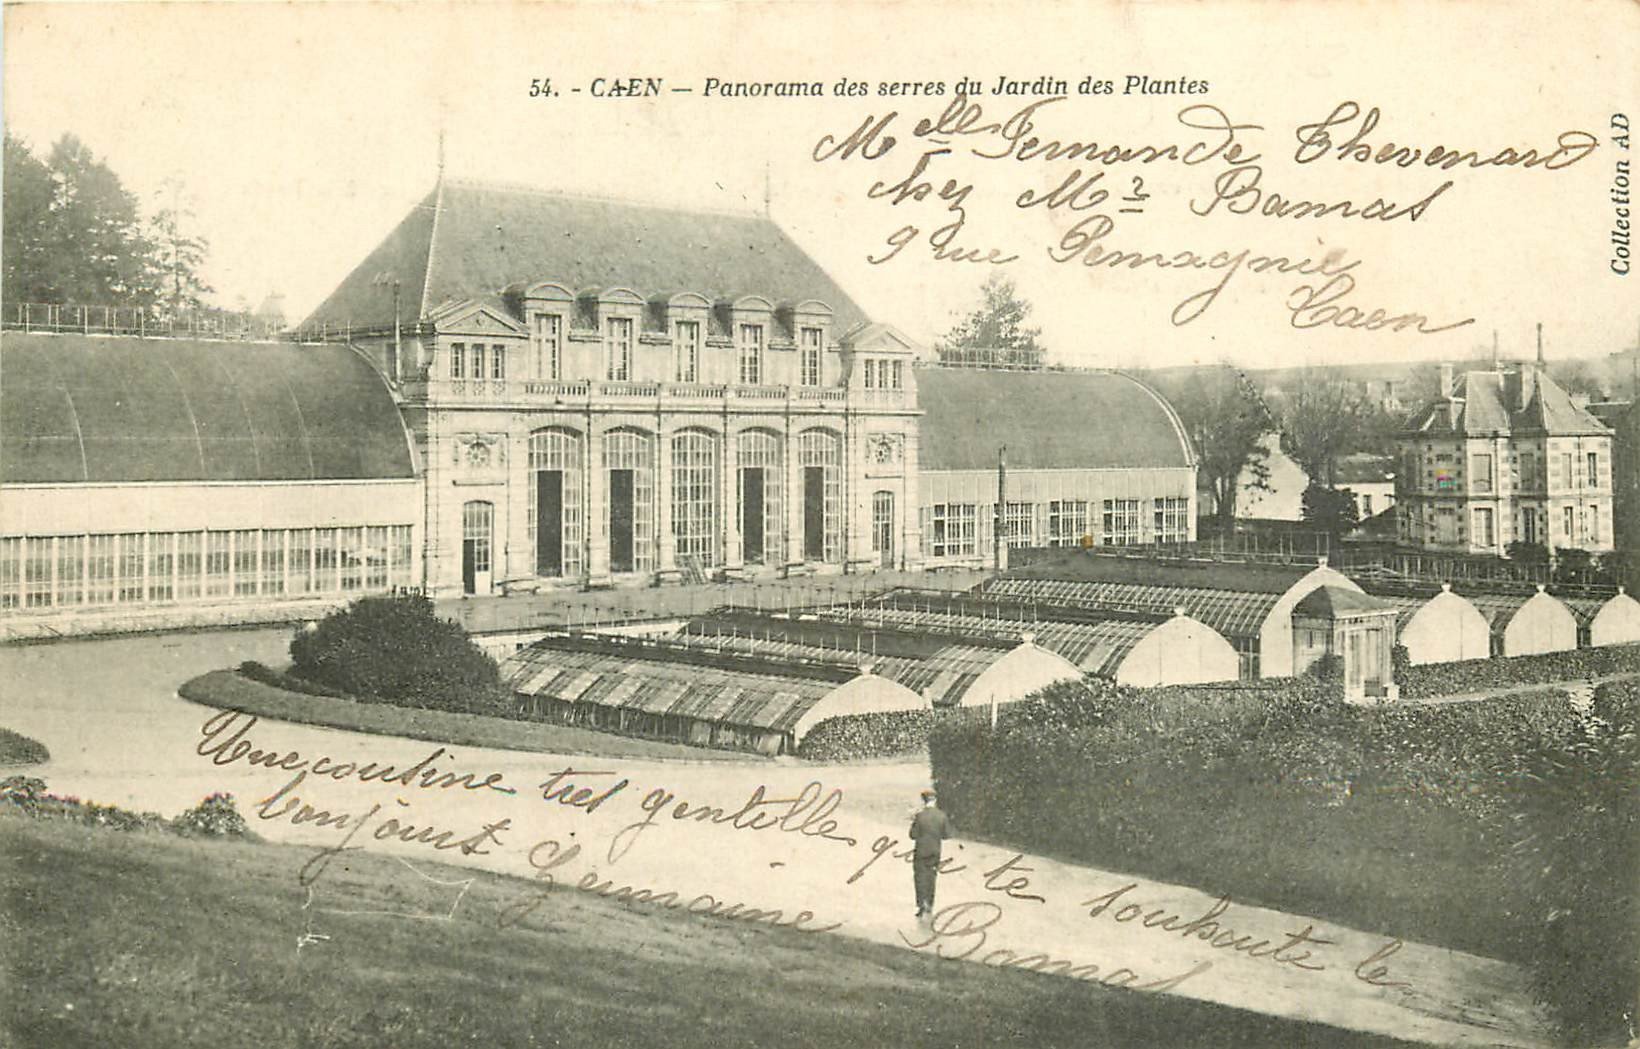 54. - CAEN — Panorama des serres du Jardin des Plantes
Collection AD
Melle Fernande Thevenard
chez Mr Bamas
9 rue Pemagnie
Caen
Une cousine tres gentille qui te souhaite le
bonjour Germaine Bamas